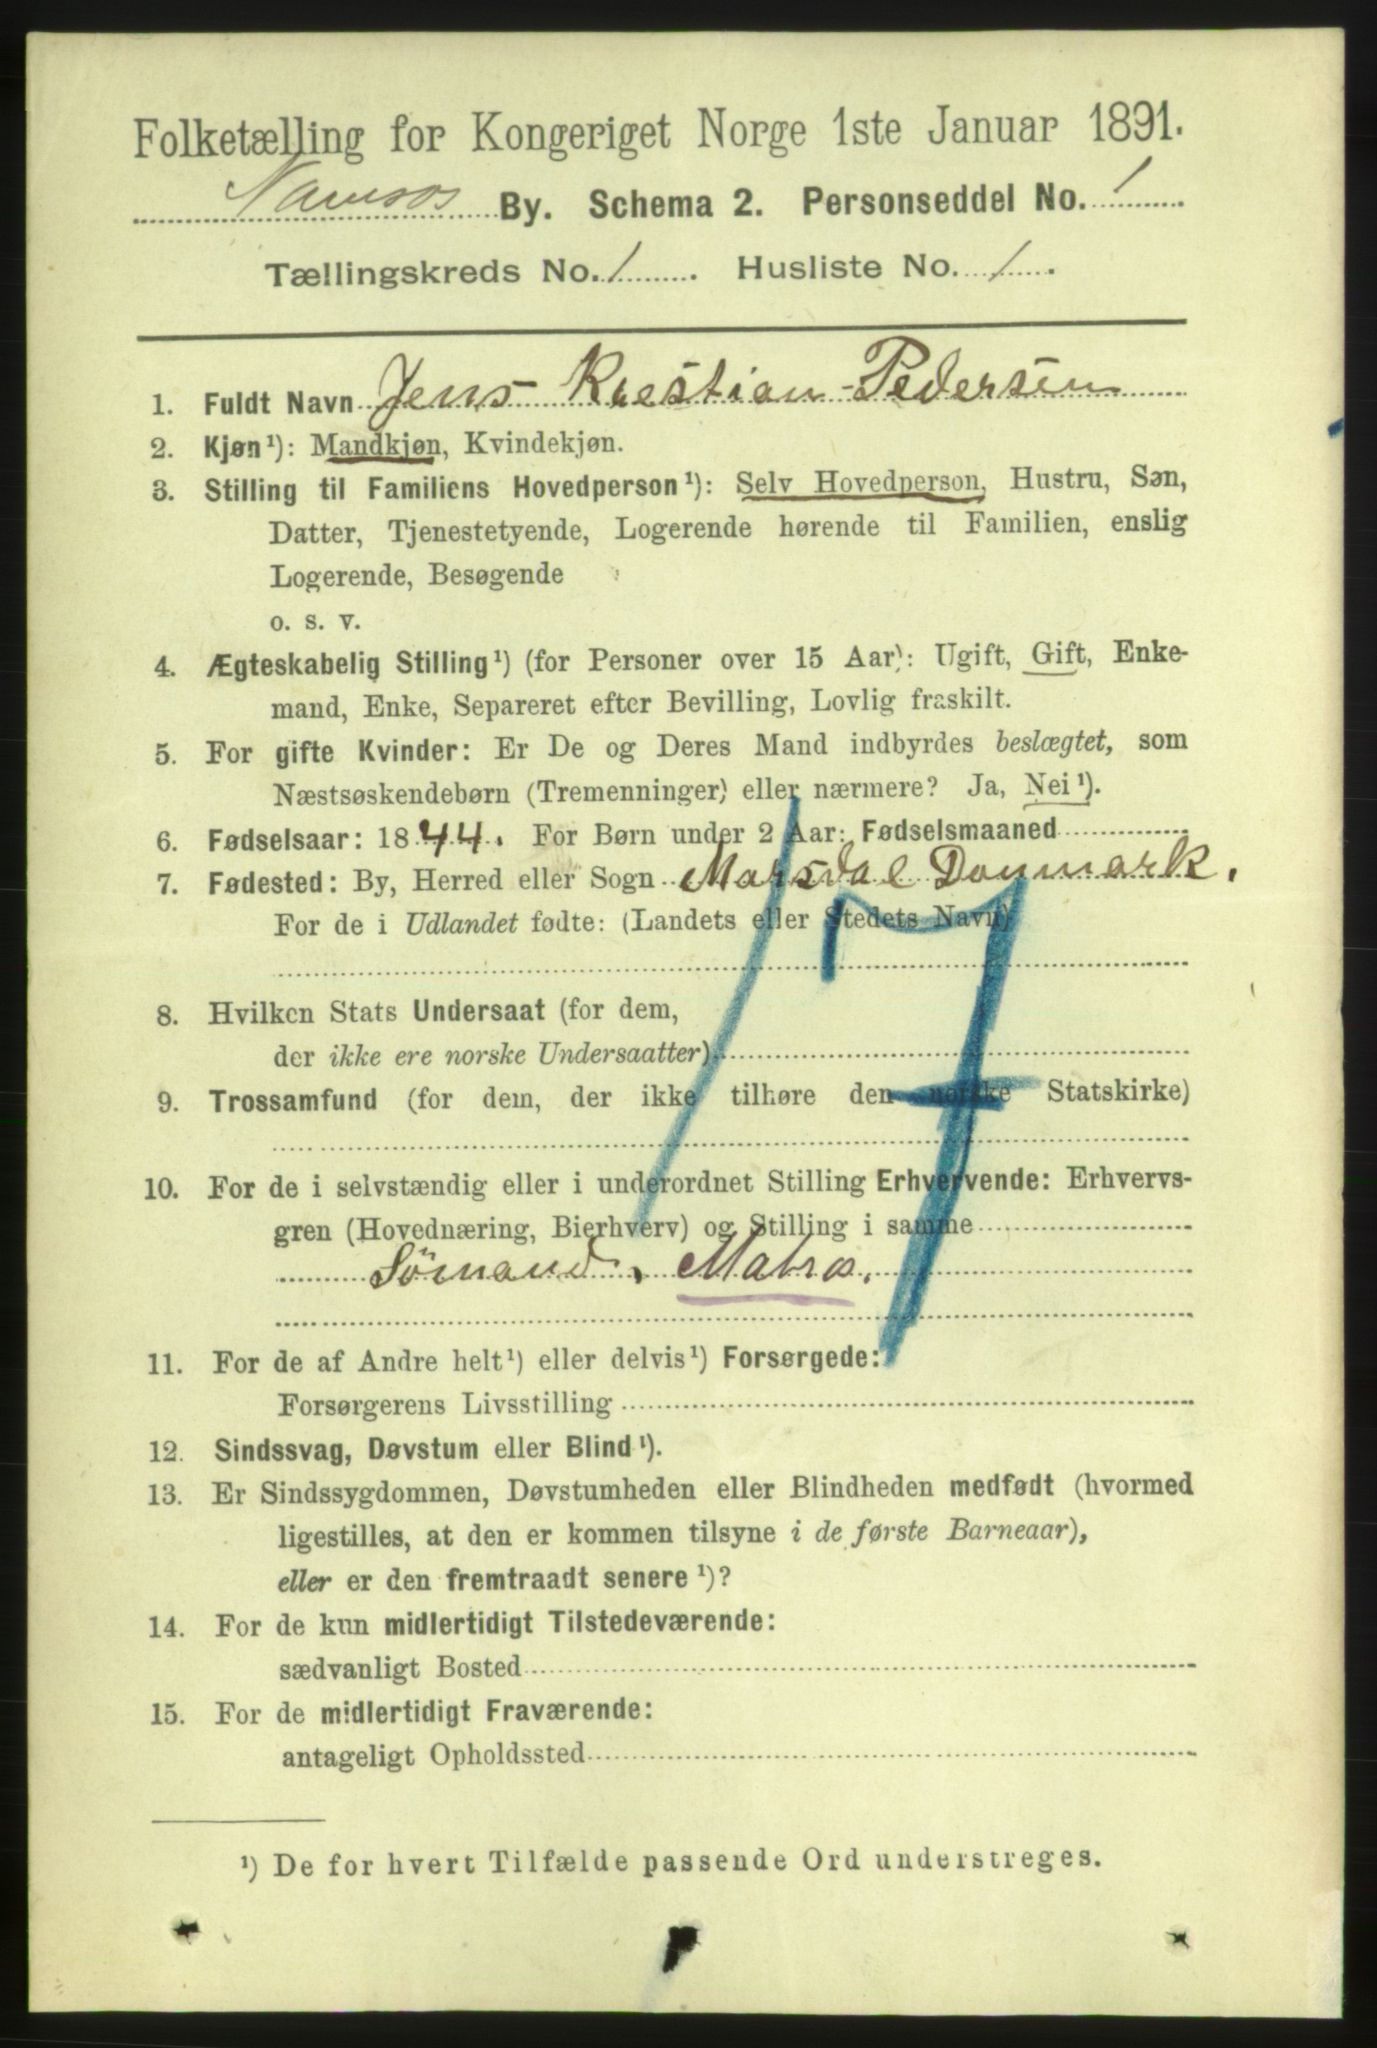 Folketælling for Kongeriget Norge 1ste Januar 1891.
Namsos By. Schema 2. Personseddel No. 1
Tællingskreds No. 1. Husliste No. 1.
1. Fuldt Navn Jens Krestian Pedersen
2. Kjøn¹): Mandkjøn, Kvindekjøn.
3. Stilling til Familiens Hovedperson¹): Selv Hovedperson, Hustru, Søn,
Datter, Tjenestetyende, Logerende hørende til Familien, enslig
Logerende, Besøgende
o. s. v.
4. Ægteskabelig Stilling¹) (for Personer over 15 Aar): Ugift, Gift, Enke-
mand, Enke, Separeret efter Bevilling, Lovlig fraskilt.
5. For gifte Kvinder: Er De og Deres Mand indbyrdes beslægtet, som
Næstsøskendebørn (Tremenninger) eller nærmere? Ja, Nei¹).
6. Fødselsaar: 1844. For Børn under 2 Aar: Fødselsmaaned
7. Fødested: By, Herred eller Sogn Marsdal Danmark.
For de i Udlandet fødte: (Landets eller Stedets Navn)
8. Hvilken Stats Undersaat (for dem,
der ikke ere norske Undersaatter)
9. Trossamfund (for dem, der ikke tilhøre den norske Statskirke)
10. For de i selvstændig eller i underordnet Stilling Erhvervende: Erhvervs-
gren (Hovednæring, Bierhverv) og Stilling i samme
Sömand. Matros.
11. For de af Andre helt¹) eller delvis¹) Forsørgede:
Forsørgerens Livsstilling
12. Sindssvag, Døvstum eller Blind¹).
13. Er Sindssygdommen, Døvstumheden eller Blindheden medfødt (hvormed
ligestilles, at den er kommen tilsyne i de første Barneaar),
eller er den fremtraadt senere¹)?
14. For de kun midlertidigt Tilstedeværende:
sædvanligt Bosted
15. For de midlertidigt Fraværende:
antageligt Opholdssted
¹) De for hvert Tilfælde passende Ord understreges.